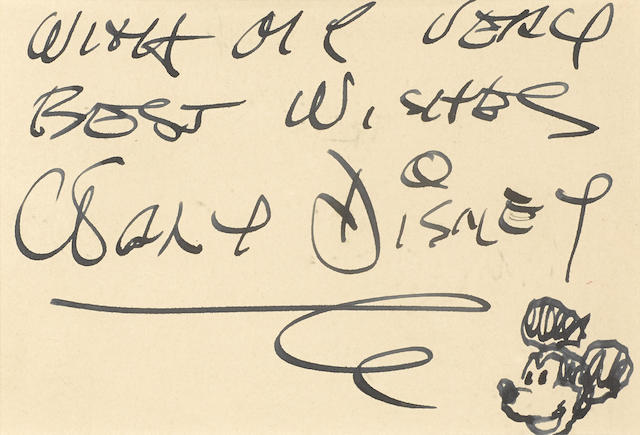 WITH MY VERY
BEST WISHES
WALT DISNEY